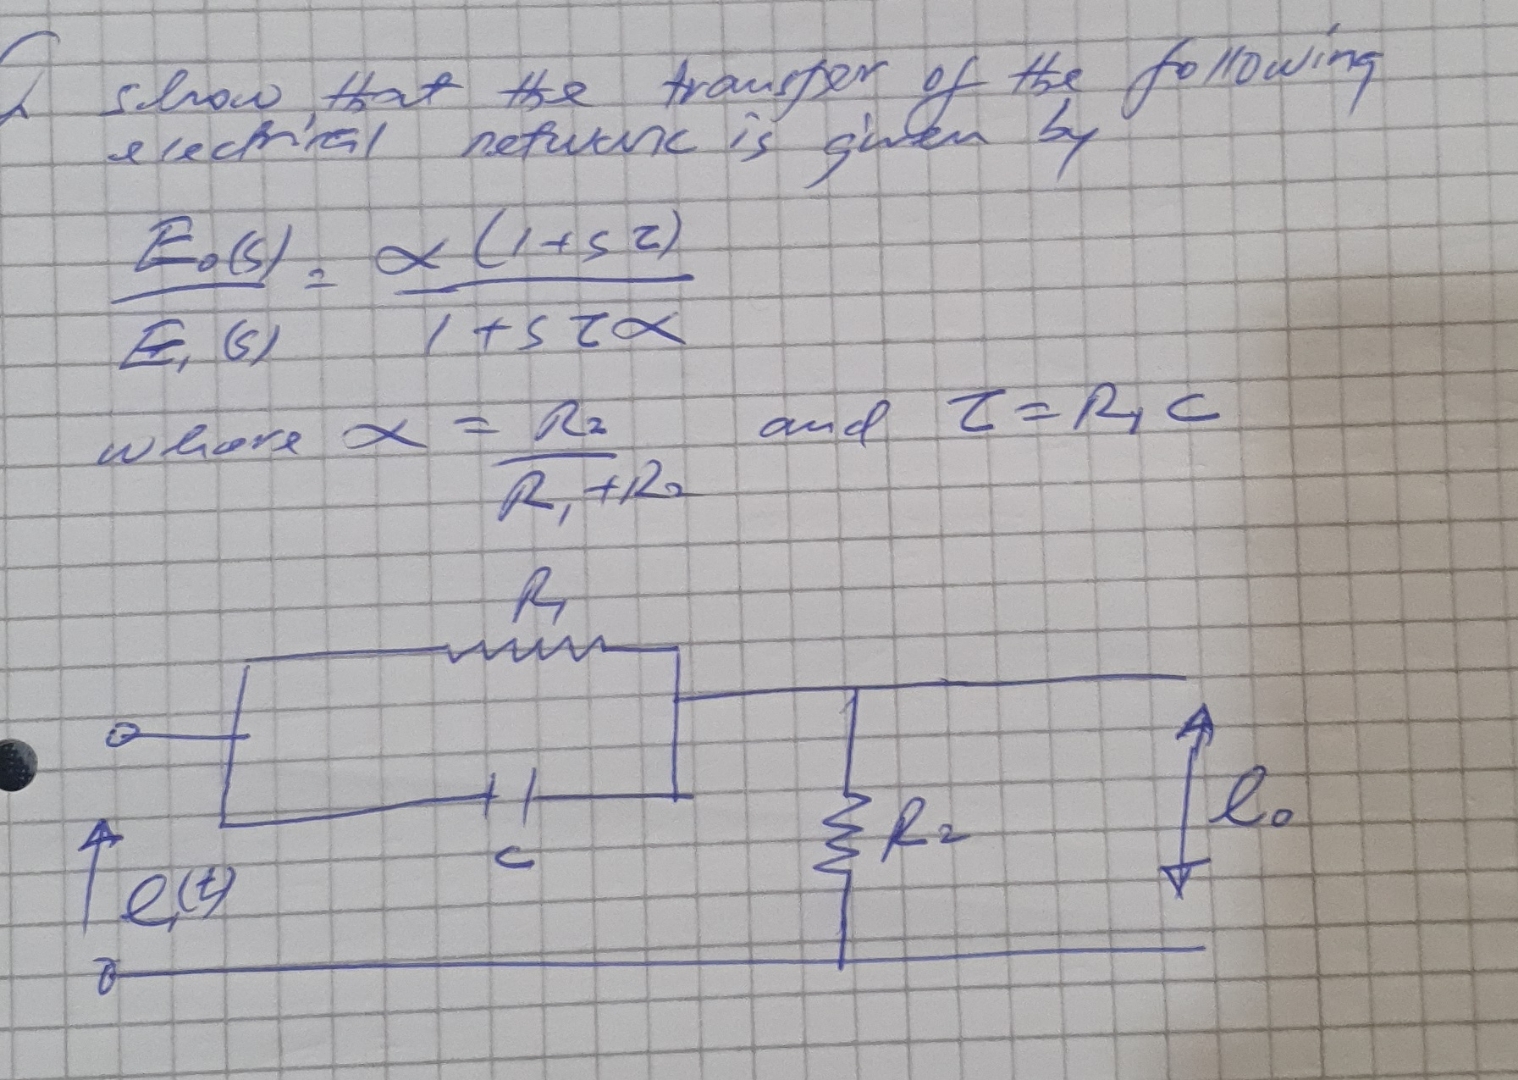 Q show that the transfer of the following
electrical network is given by
E₀(s) = α(1+sτ)
E₁(s) 1+sτα
where α = R₂ and τ = R₁C
R₁+R₂
R₁
C
R₂
e₀
e₁(t)